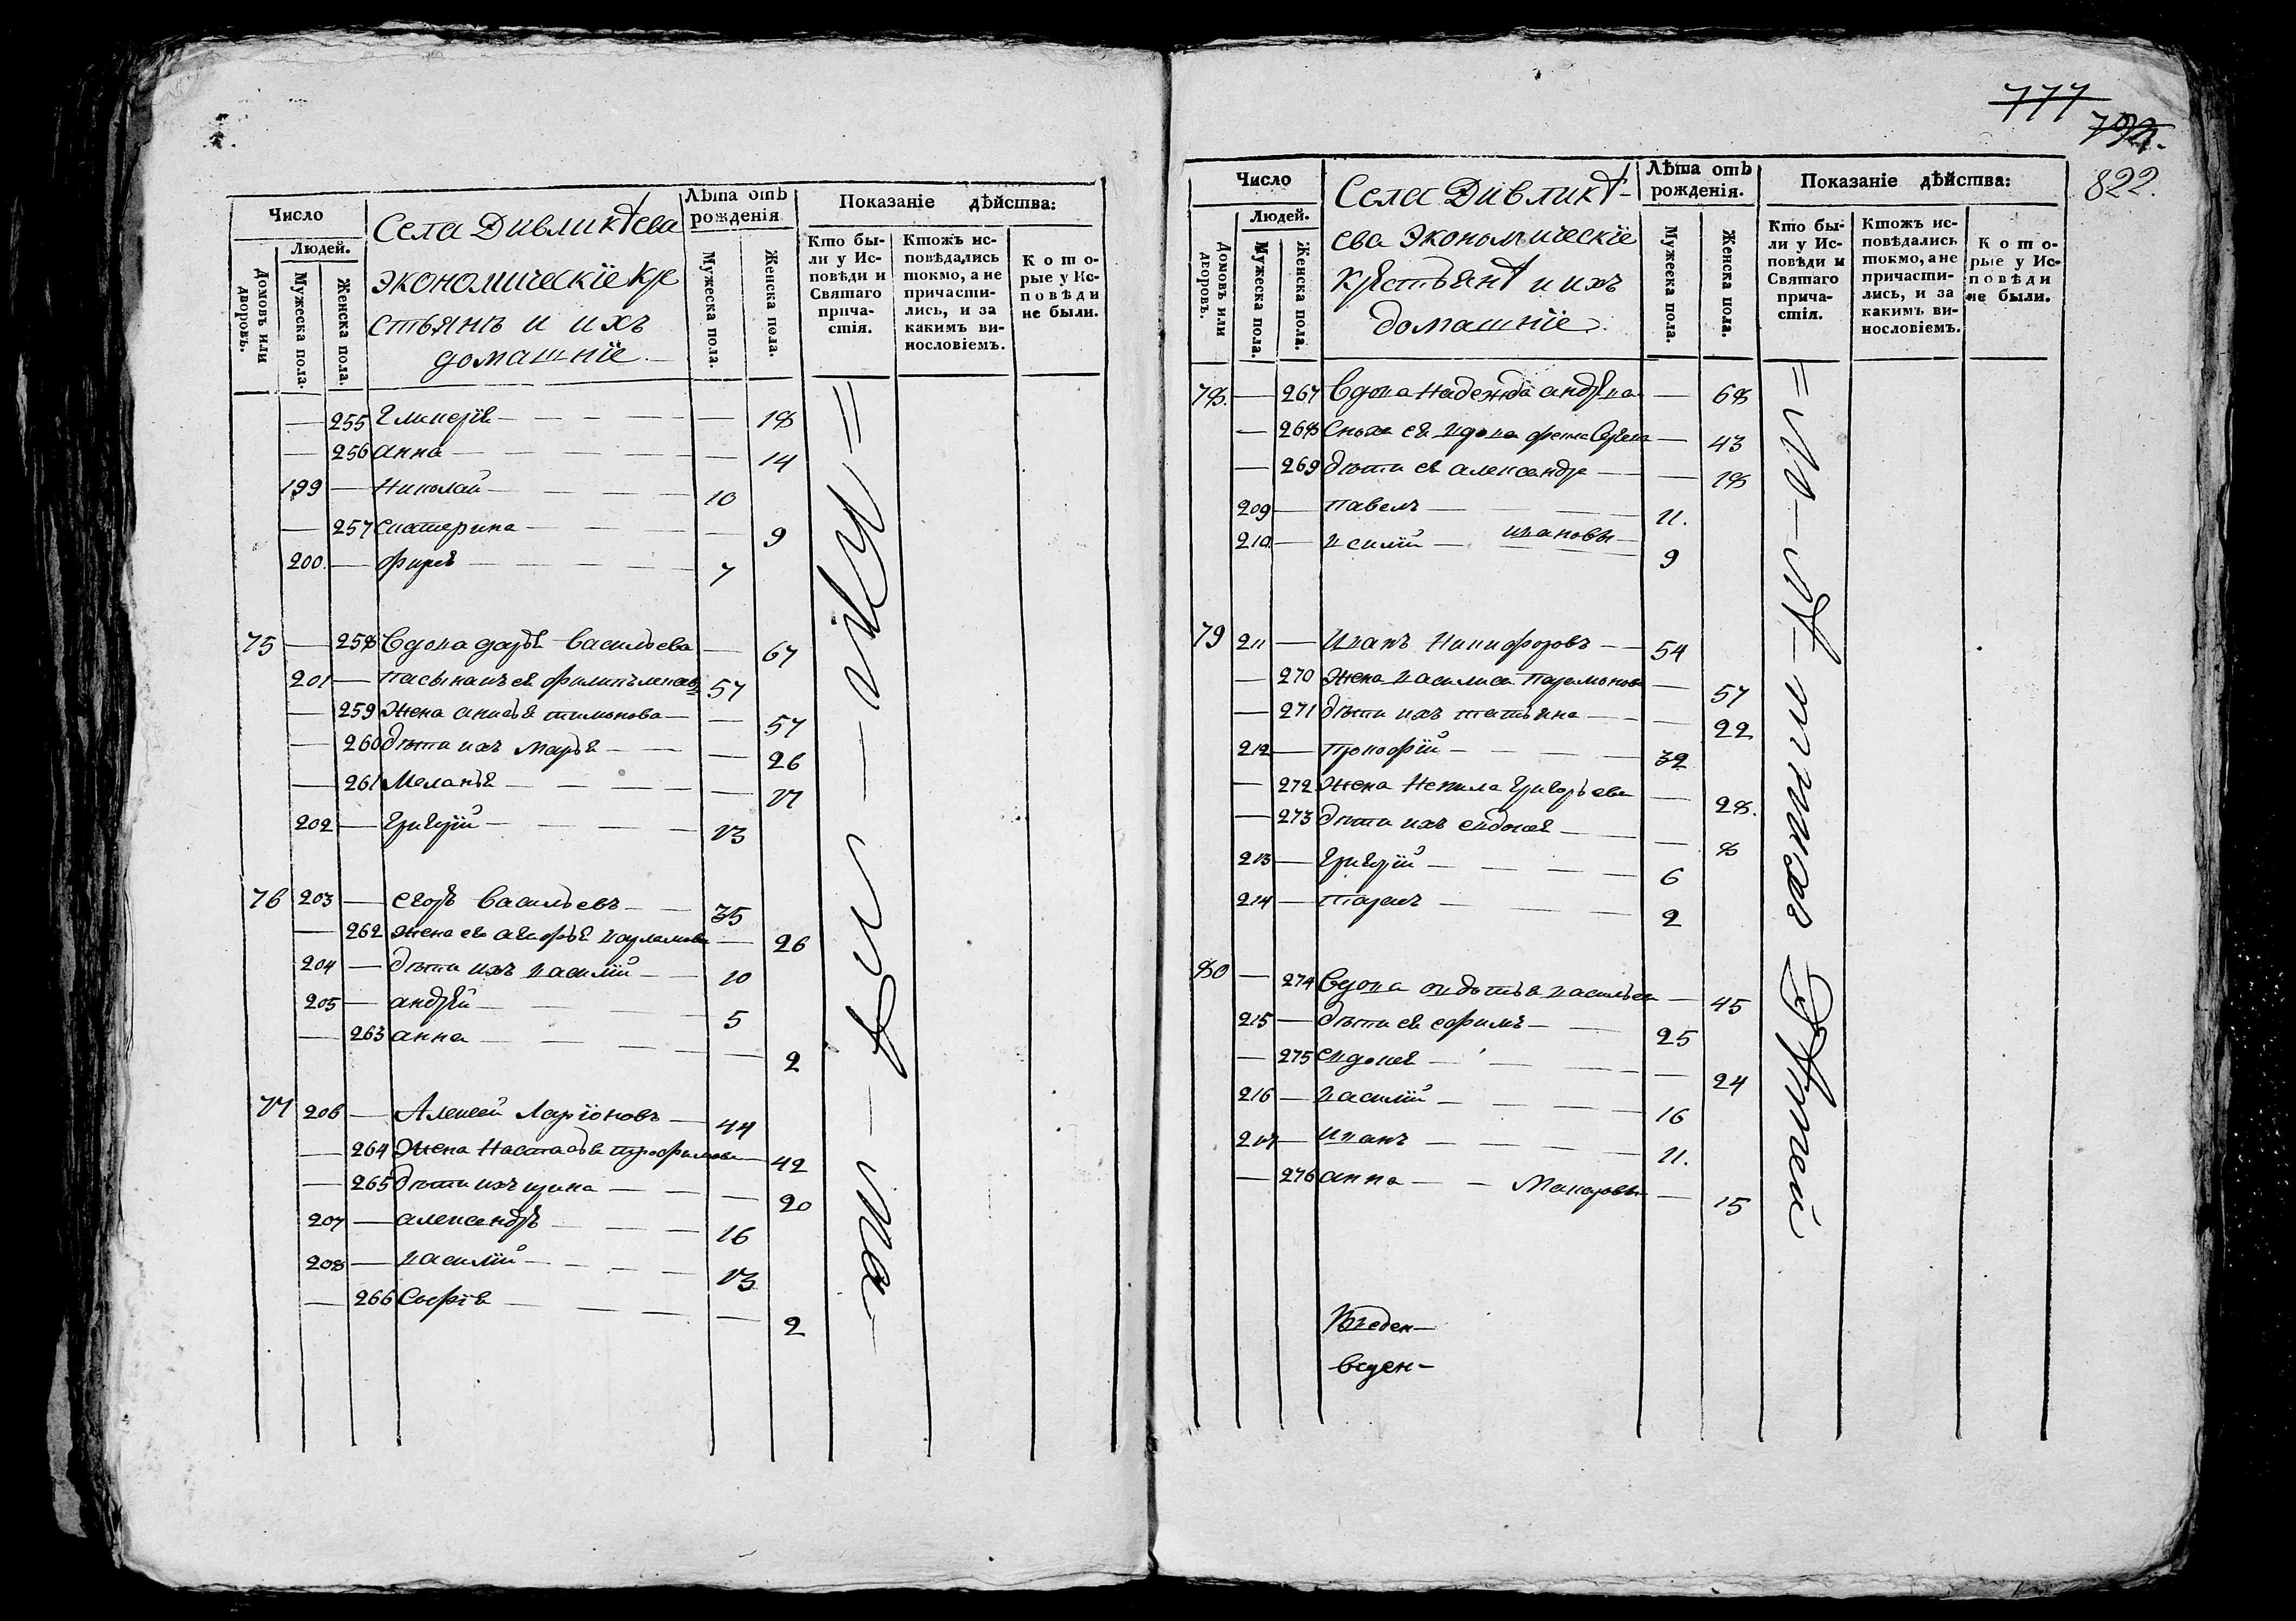 Число
Людей.
Домовъ или дворовъ.
Мужеска пола.
Женска пола.
Села Дивликѣева
экономическіе кре
стьянъ и ихъ
домашніе
Лѣта отъ рожденія
Мужеска пола.
Женска пола.
Показаніе дѣйства:
Кто бы-
ли у Ис-
повѣди и
Святаго
прича-
стія.
Ктожъ ис-
повѣдались
токмо, а не
причасти-
лись, и за
какимъ ви-
нословіемъ.
Кото-
рые у Ис-
повѣди
не были.
— 255 — 18
— 256 анна — 14
199 — Николай — 10
— 257 Екатерина — 9
200 — 7
75 — 258 Вдова дарья Васильева — 67
201 — пасынакъ ея филипъ 57
— 259 жена анисья — 57
— 260 дѣти ихъ марья — 26
— 261 Меланья — 17
202 — григорій — 13
76 203 — егоръ Васильевъ — 35
— 262 жена его — 26
204 — дѣти ихъ василій — 10
205 — андрей — 5
— 263 анна — 2
77 206 — Алексей Ларіоновъ — 44
— 264 жена Настасья трофимова — 42
— 265 дѣти ихъ ирина — 20
207 — александръ — 16
208 — василій — 13
— 266 Софія — 2
777
822.
Число
Людей.
Домовъ или дворовъ.
Мужеска пола.
Женска пола.
Села Дивликѣ-
ева экономическіе
крестьянѣ и ихъ
домашніе
Лѣта отъ
рожденія.
Мужеска пола.
Женска пола.
Показаніе дѣйства:
Кто бы-
ли у Ис-
повѣди и
Святаго
прича-
стія.
Ктожъ ис-
повѣдались
токмо, а не
причасти-
лись, и за
какимъ ви-
нословіемъ.
Кото-
рые у Ис-
повѣди
не были.
78. — 267 Вдова надежда — 68
— 268 Сноха ея вдова — 43
— 269 дѣти ея александра — 18
209 — павелъ — 11.
210 — ивановы — 9
79 211 — Иванъ Никифоровъ — 54
— 270 жена василиса парамонова — 57
— 271 дѣти ихъ татьяна — 22
212 — прокофій — 32
— 272 жена Ненила Григорьева — 28.
— 273 дѣти ихъ — 8
213 — григорій — 6
214 — тарасъ — 2
80 — 274 Вдова авдотья васильева — 45
215 — дѣти ея ефимъ — 25
— 275 — 24
216 — василій — 16
217 — иванъ — 11.
— 276 анна — — Макаровы — 15
веден-